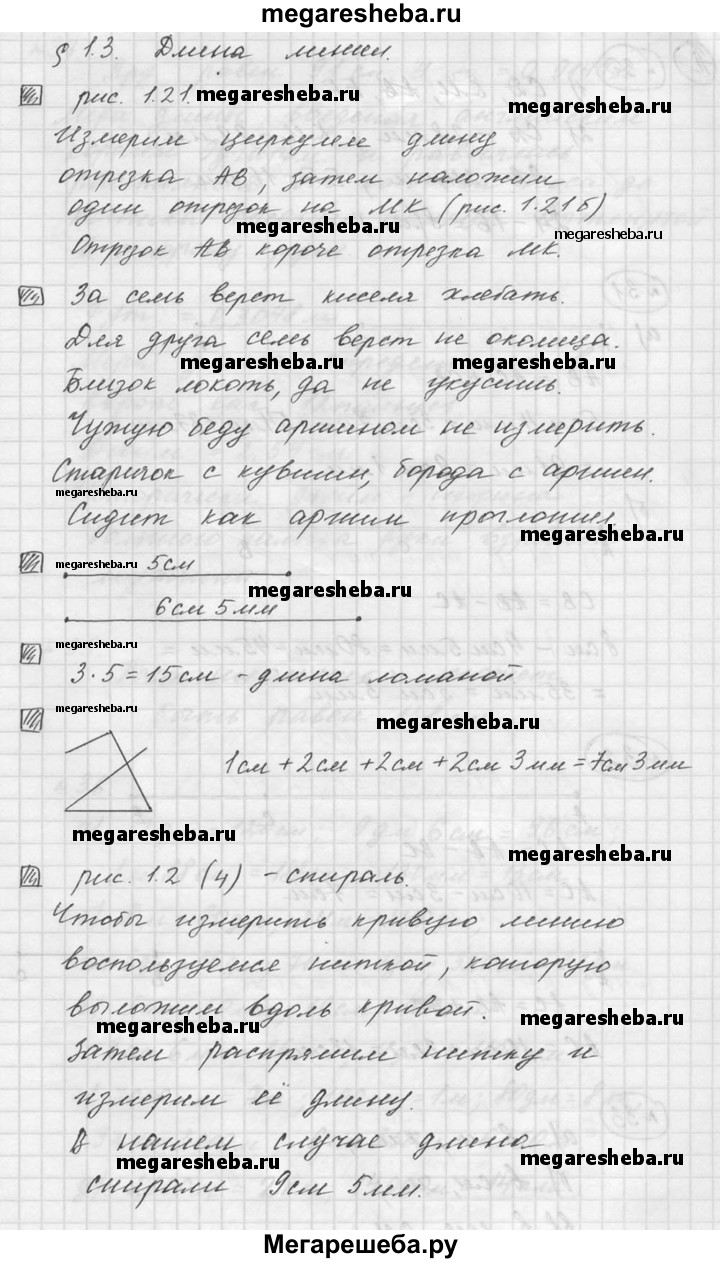 megaresheba.ru
§ 1.3. Длина линии.
рис. 1.21. megaresheba.ru
megaresheba.ru
Измерим циркулем длину
отрезка AB, затем наложим
один отрезок на MK (рис. 1.21б)
megaresheba.ru megaresheba.ru
Отрезок AB короче отрезка MK.
За семь верст киселя хлебать.
Для друга семь верст не околица.
megaresheba.ru megaresheba.ru
Близок локоть, да не укусишь.
Чужую беду аршином не измерить.
Старичок с кувшин, борода с аршин.
megaresheba.ru
Сидит как аршин проглотил
megaresheba.ru
megaresheba.ru 5см
megaresheba.ru
6см 5мм
megaresheba.ru
3·5=15см - длина ломаной
megaresheba.ru
megaresheba.ru
1см+2см+2см+2см 3мм=7см 3мм
megaresheba.ru
megaresheba.ru
рис. 1.2 (4) - спираль.
Чтобы измерить кривую линию
воспользуемся ниткой, которую
выложим вдоль кривой.
megaresheba.ru megaresheba.ru
Затем распрямим нитку и
измерим её длину.
В нашем случае длина
megaresheba.ru megaresheba.ru
спирали 9см 5мм.
Мегарешеба.ру